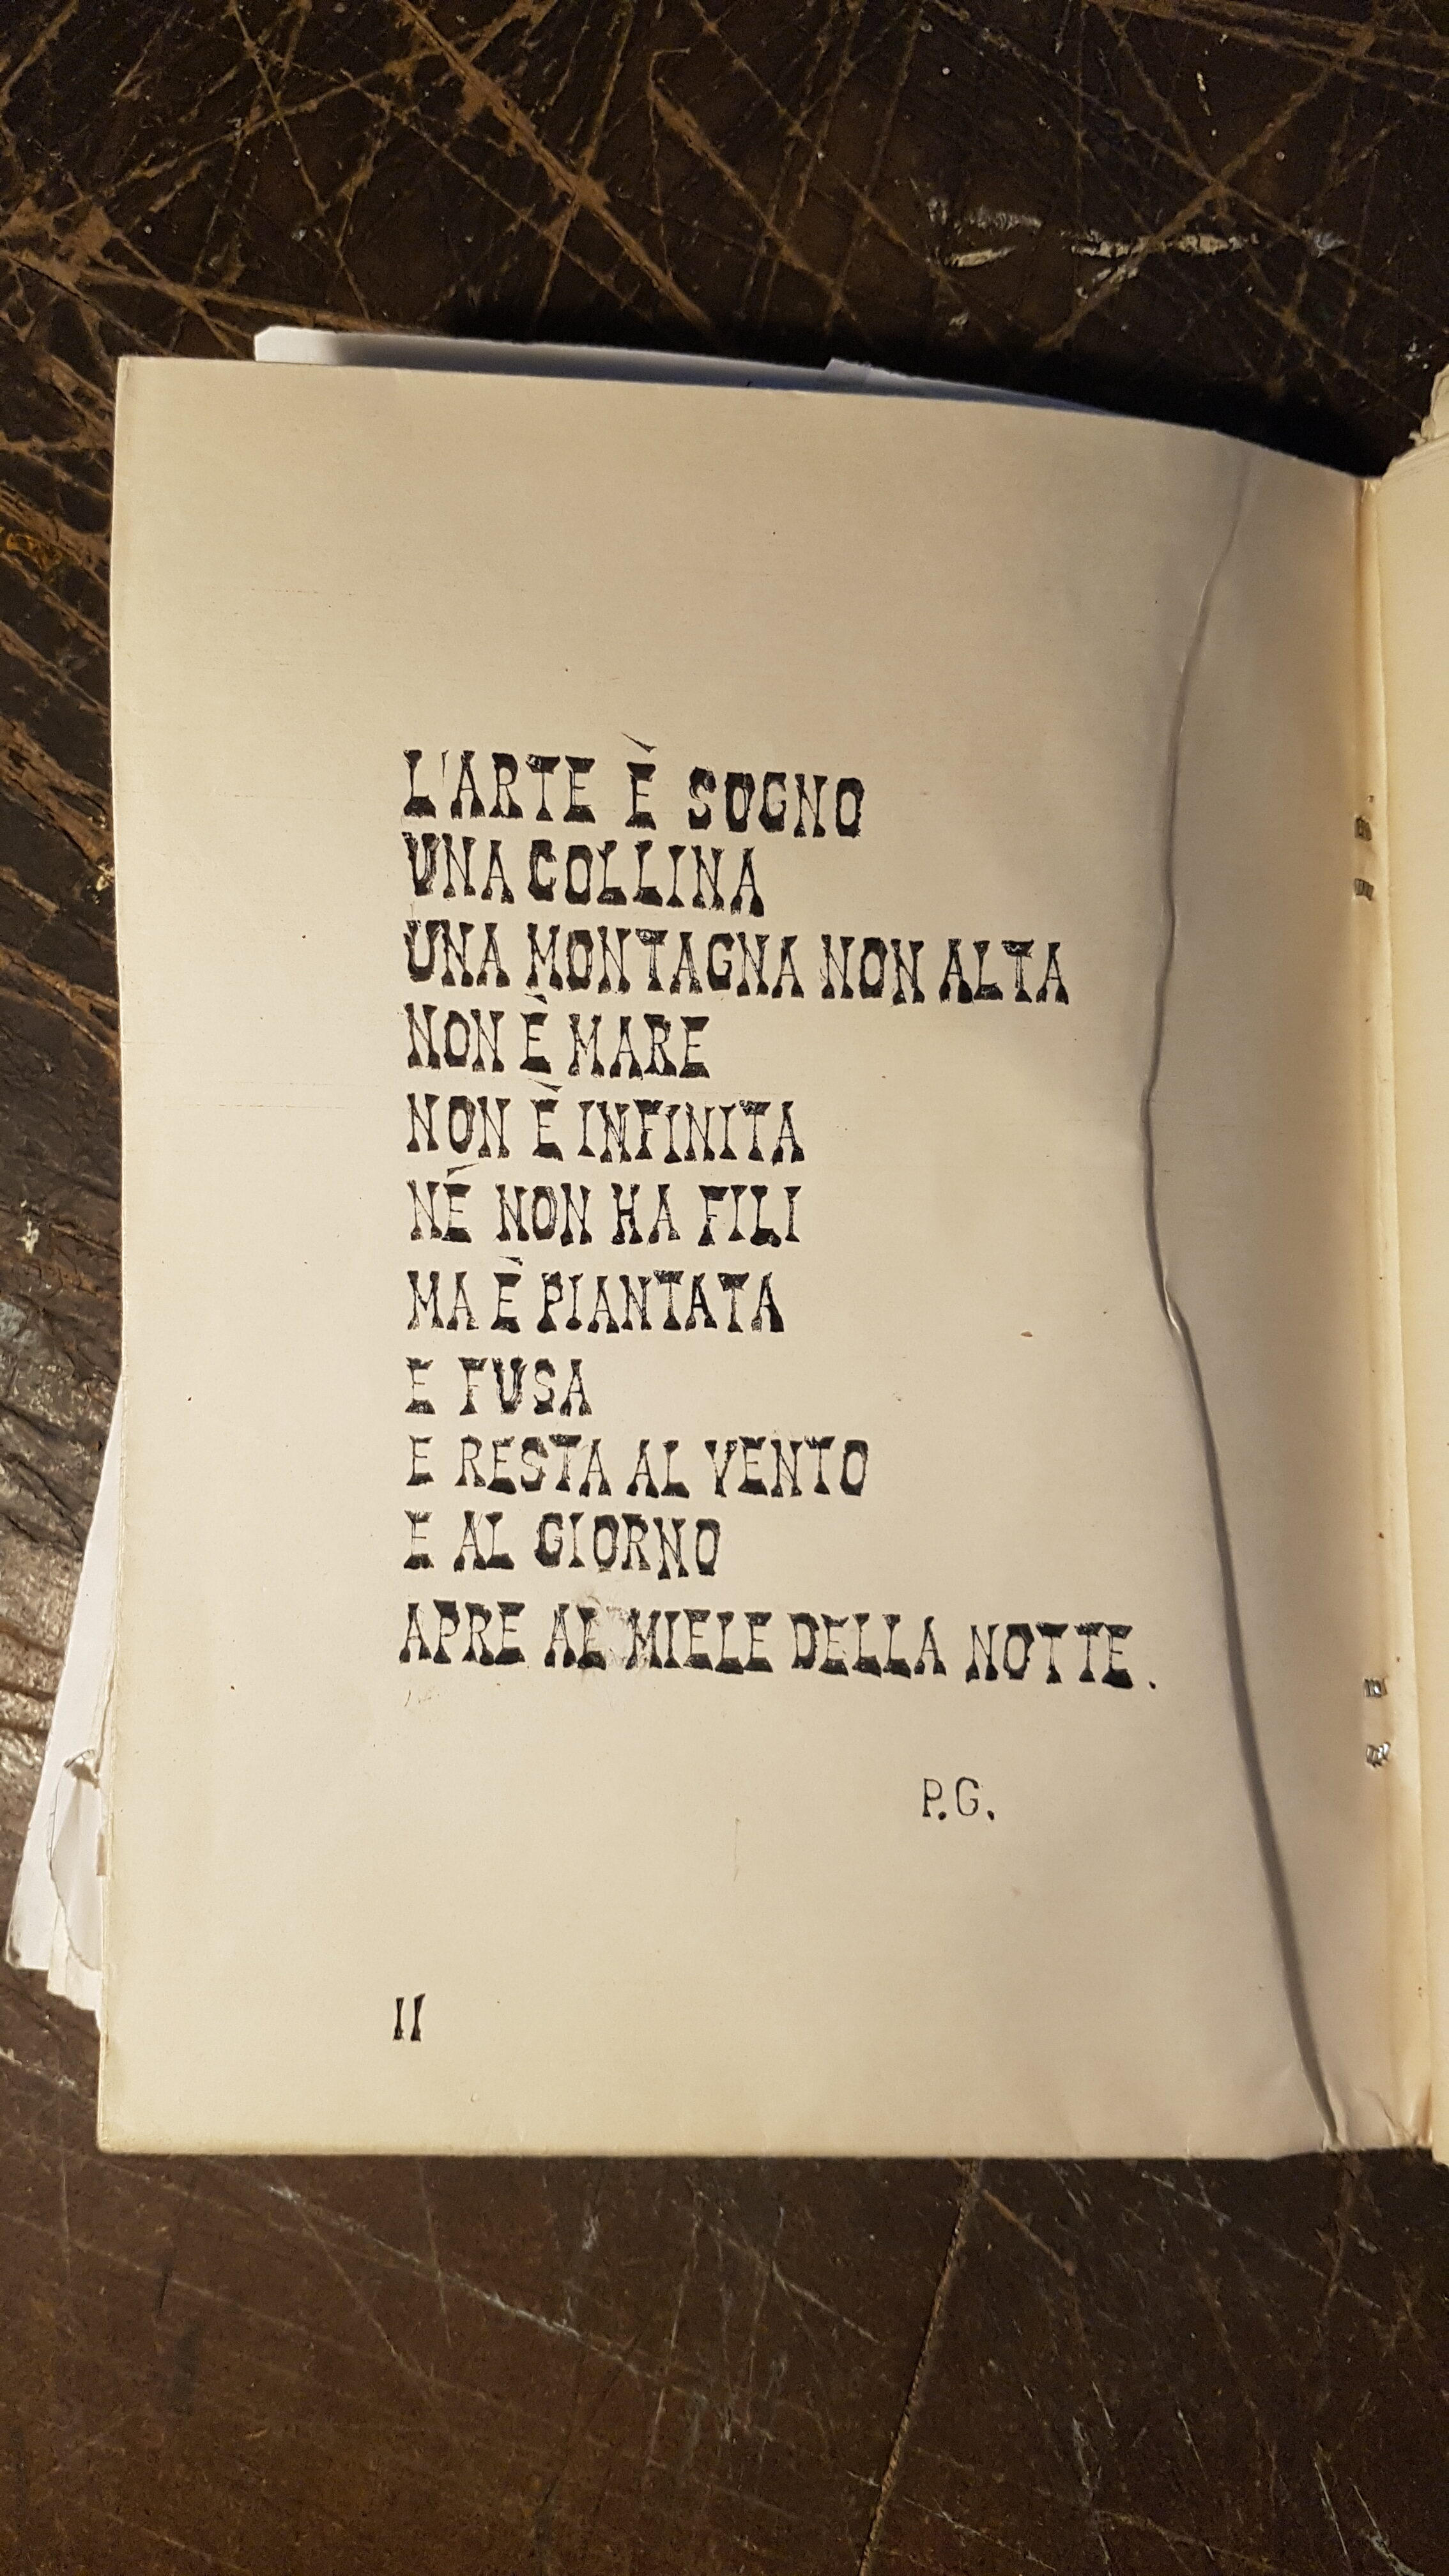 L'ARTE È SOGNO
UNA COLLINA
UNA MONTAGNA NON ALTA
NON È MARE
NON È INFINITA
NÉ NON HA FILI
MA È PIANTATA
E FUSA
E RESTA AL VENTO
E AL GIORNO
APRE AL MIELE DELLA NOTTE.
P.G.
11